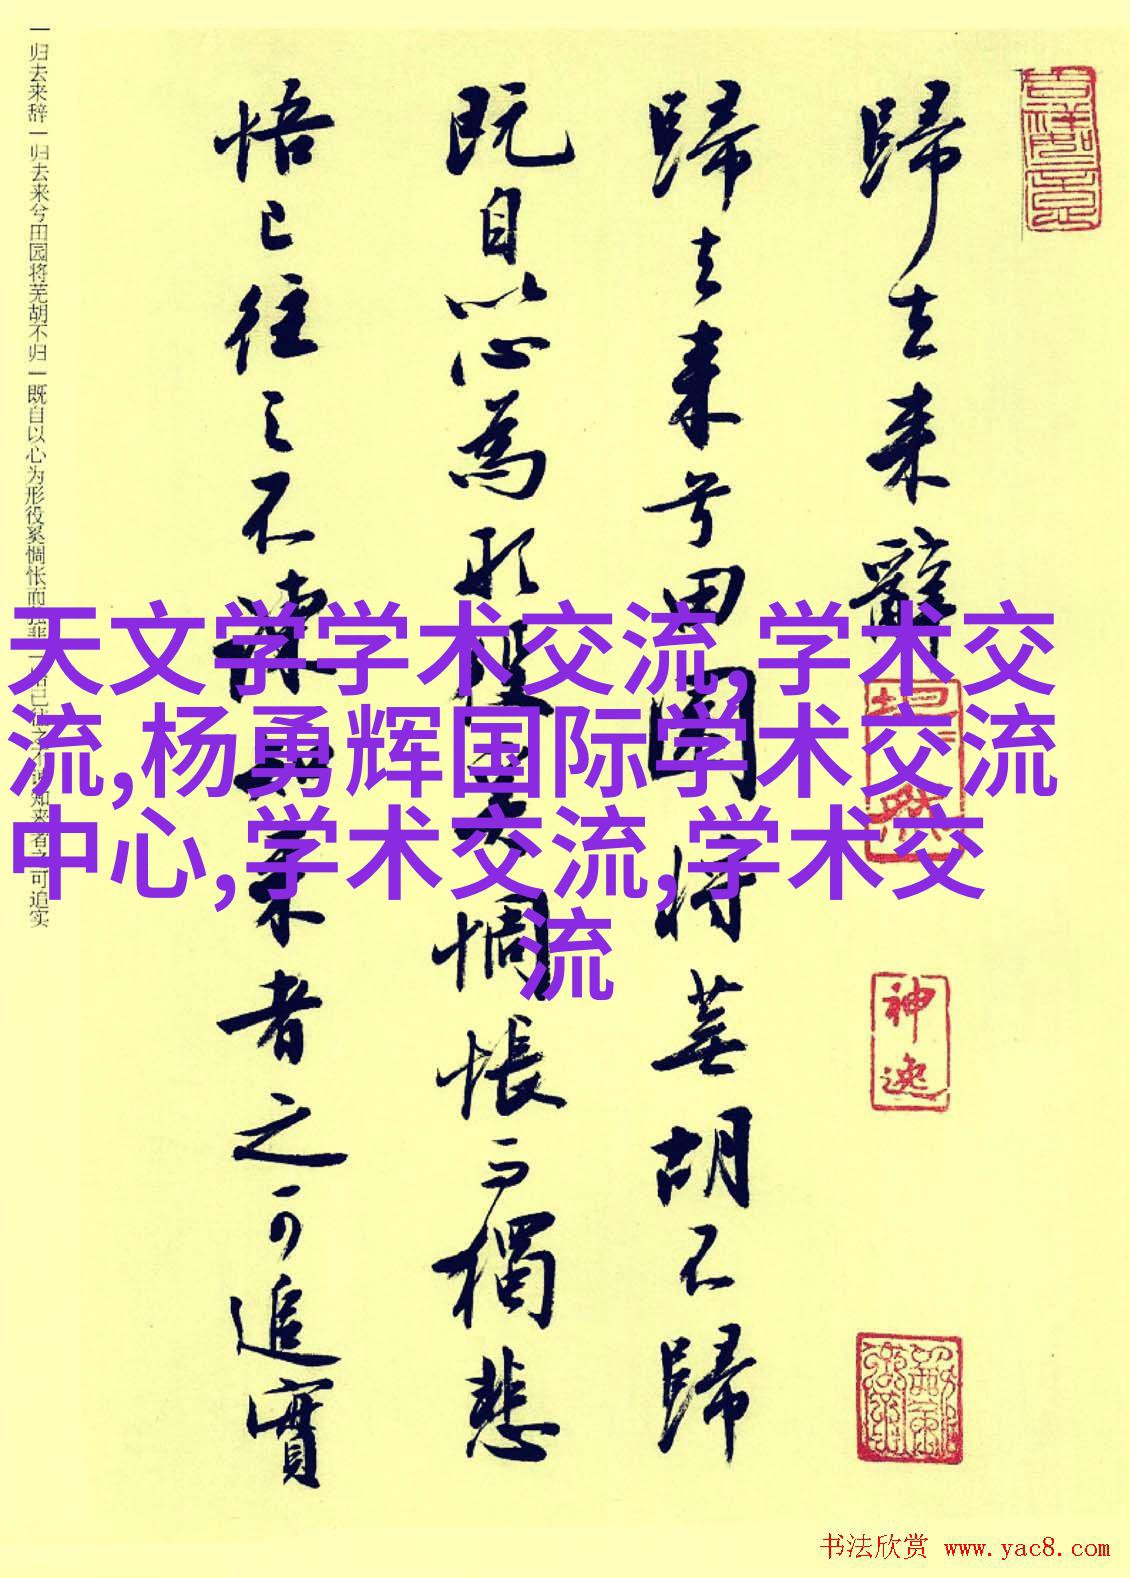 歸去来辭
歸去来兮田園将蕪胡不歸
既自以心為形役奚惆悵而獨悲
悟已往之不諫知来者之可追實
神逸
一归去来辞一归去来兮田园将芜胡不归一既自以心为形役奚惆怅而独悲一悟已往之不谏知来者之可追实
天文学学术交流,学术交
流,杨勇辉国际学术交流
中心,学术交流,学术交
流
书法欣赏 www.yac8.com